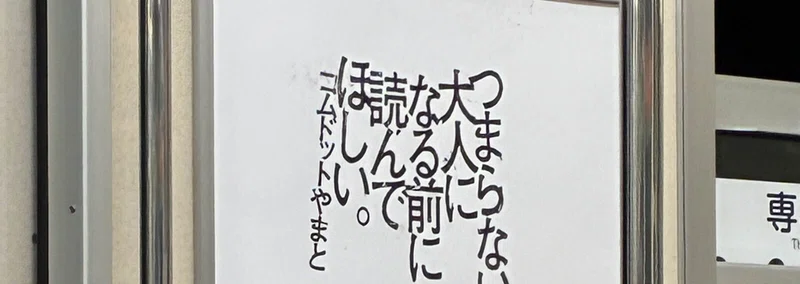 つまらない
大人に
なる前に
読んで
ほしい。
コムドットやまと
専